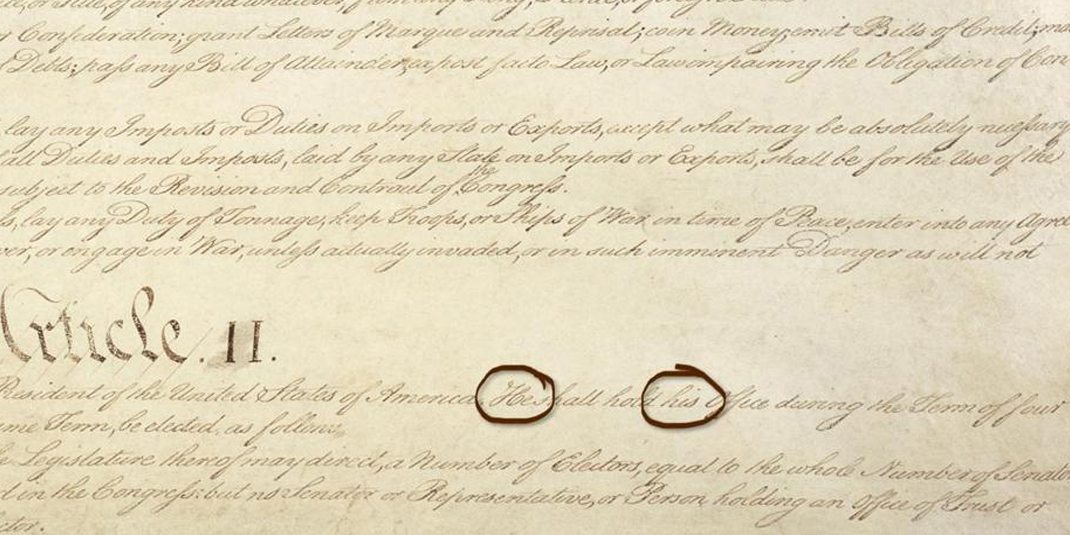 Confederation; grant Letters of Marque and Reprisal; coin Money; emit Bills of Credit;
Debts; pass any Bill of Attainder, ex post facto Law, or Law impairing the Obligation of Con
lay any Imposts or Duties on Imports or Exports, except what may be absolutely necessary
all Duties and Imposts, laid by any State on Imports or Exports, shall be for the Use of the
subject to the Revision and Controul of the Congress.
lay any Duty of Tonnage, keep Troops, or Ships of War in time of Peace, enter into any Agree
or engage in War, unless actually invaded, or in such imminent Danger as will not
Article. II.
President of the United States of America. He shall hold his Office during the Term of four
Term, be elected, as follows
Legislature thereof may direct, a Number of Electors, equal to the whole Number of Senator
in the Congress: but no Senator or Representative, or Person holding an Office of Trust or
ctor.